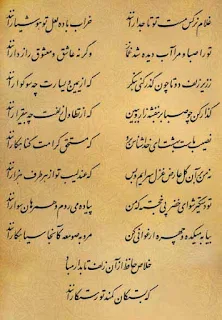 غلام نرگس مست تو تاجدارانند خراب باده لعل تو هوشیارانند
تو را صبا و مرا آب دیده شد غماز وگرنه عاشق و معشوق رازدارانند
ز زیر زلف دوتا چون گذر کنی بنگر که از یمین و یسارت چه سوگوارانند
گذار کن چو صبا بر بنفشه زار و ببین که از تطاول زلفت چه بیقرارانند
نصیب ماست بهشت ای خداشناس برو که مستحق کرامت گناهکارانند
نه من بر آن گل عارض غزل سرایم و بس که عندلیب تو از هر طرف هزارانند
تو دستگیر شو ای خضر پی خجسته که من پیاده می روم و همرهان سوارانند
بیا به میکده و چهره ارغوانی کن مرو به صومعه کانجا سیاهکارانند
خلاص حافظ از آن زلف تابدار مباد
که بستگان کمند تو رستگارانند